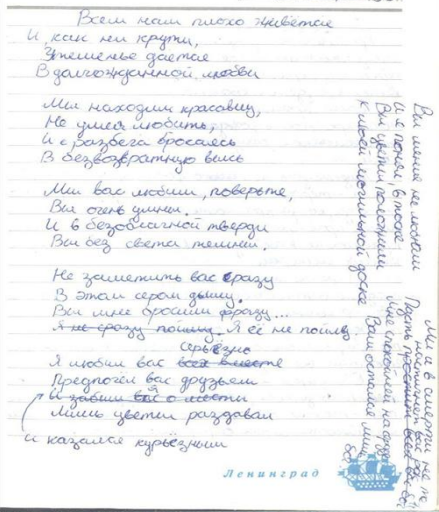 Всем нам плохо живется
И, как ни крути,
Утешенье дается
В долгожданной любви
Мы находим красавиц,
Не умея любить,
И с разбега бросаясь
В безвозвратную высь
Мы вас любили, поверьте,
Вы очень умны.
И в безоблачной тверди
Вы без света темны.
Не заметить вас сразу
В этом сером дыму.
Вы мне бросили фразу...
Я не сразу пойму. Я её не пойму.
серьёзно
Я любил вас всех вместе
Предпочёл вас друзьям
И забыл вас о мести
Лишь цветы раздавал
И казался курьёзным
Вы меня не любили
И я понял, в тоске
Вы цветы положили
К моей могильной доске
Мы и в смерти не
Пусть простит всех вас
Мне спокойней на
Вам остался лишь
Ленинград